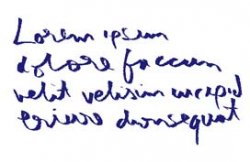 Lorem ipsum
dolore faccum
velit velisim incipid
eriure dunsequat